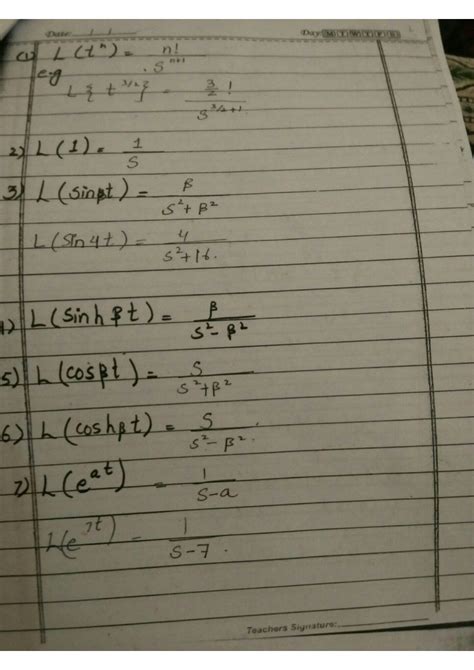 Date: / / Day M T W T F S
(1) L(tⁿ) = n! / sⁿ⁺¹
e.g
L{t^3/2} = 3/2 ! / s^3/2+1
2) L(1) = 1/S
3) L(sinβt) = β / s²+β²
L(sin4t) = 4 / s²+16.
4) L(sinhβt) = β / s²-β²
5) L(cosβt) = s / s²+β²
6.) L(coshβt) = s / s²-β².
7) L(e^at) = 1 / s-a
L(e^7t) = 1 / s-7.
Teachers Signature: